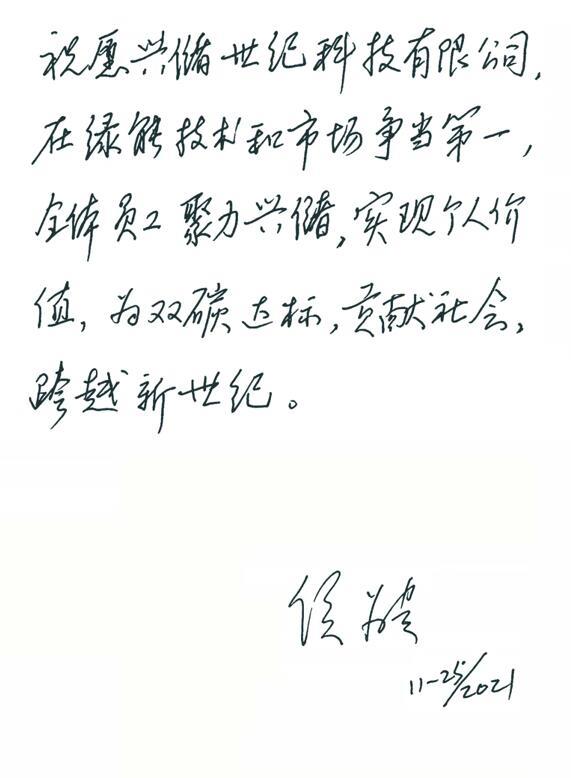 祝愿兴储世纪科技有限公司，
在绿能技术和市场争当第一，
全体员工聚力兴储，实现个人价
值，为双碳达标，贡献社会，
跨越新世纪。
侯
11-25/2021